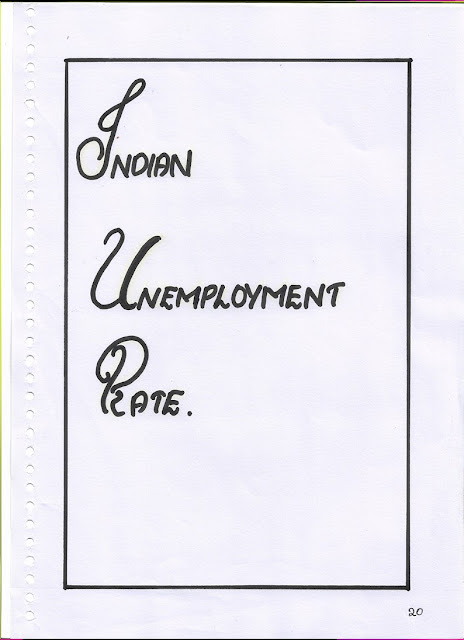 INDIAN
UNEMPLOYMENT
RATE.
20